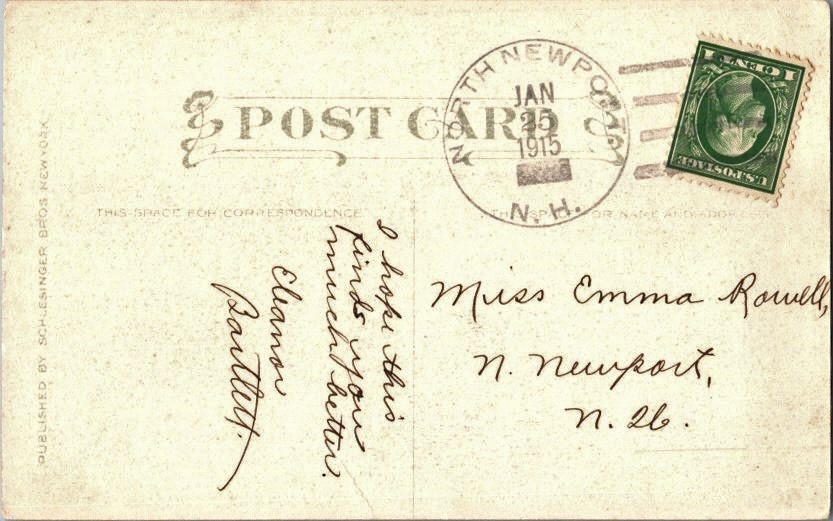 POST CARD
NORTH NEWPORT
JAN
25
1915
N. H.
1 CENT 1
U.S. POSTAGE
THIS SPACE FOR CORRESPONDENCE
THIS SPACE FOR NAME AND ADDRESS
PUBLISHED BY SCHLESINGER BROS. NEW YORK
I hope this
finds you
much better.
Eleanor
Bartlett.
Miss Emma Rowell,
N. Newport,
N. H.